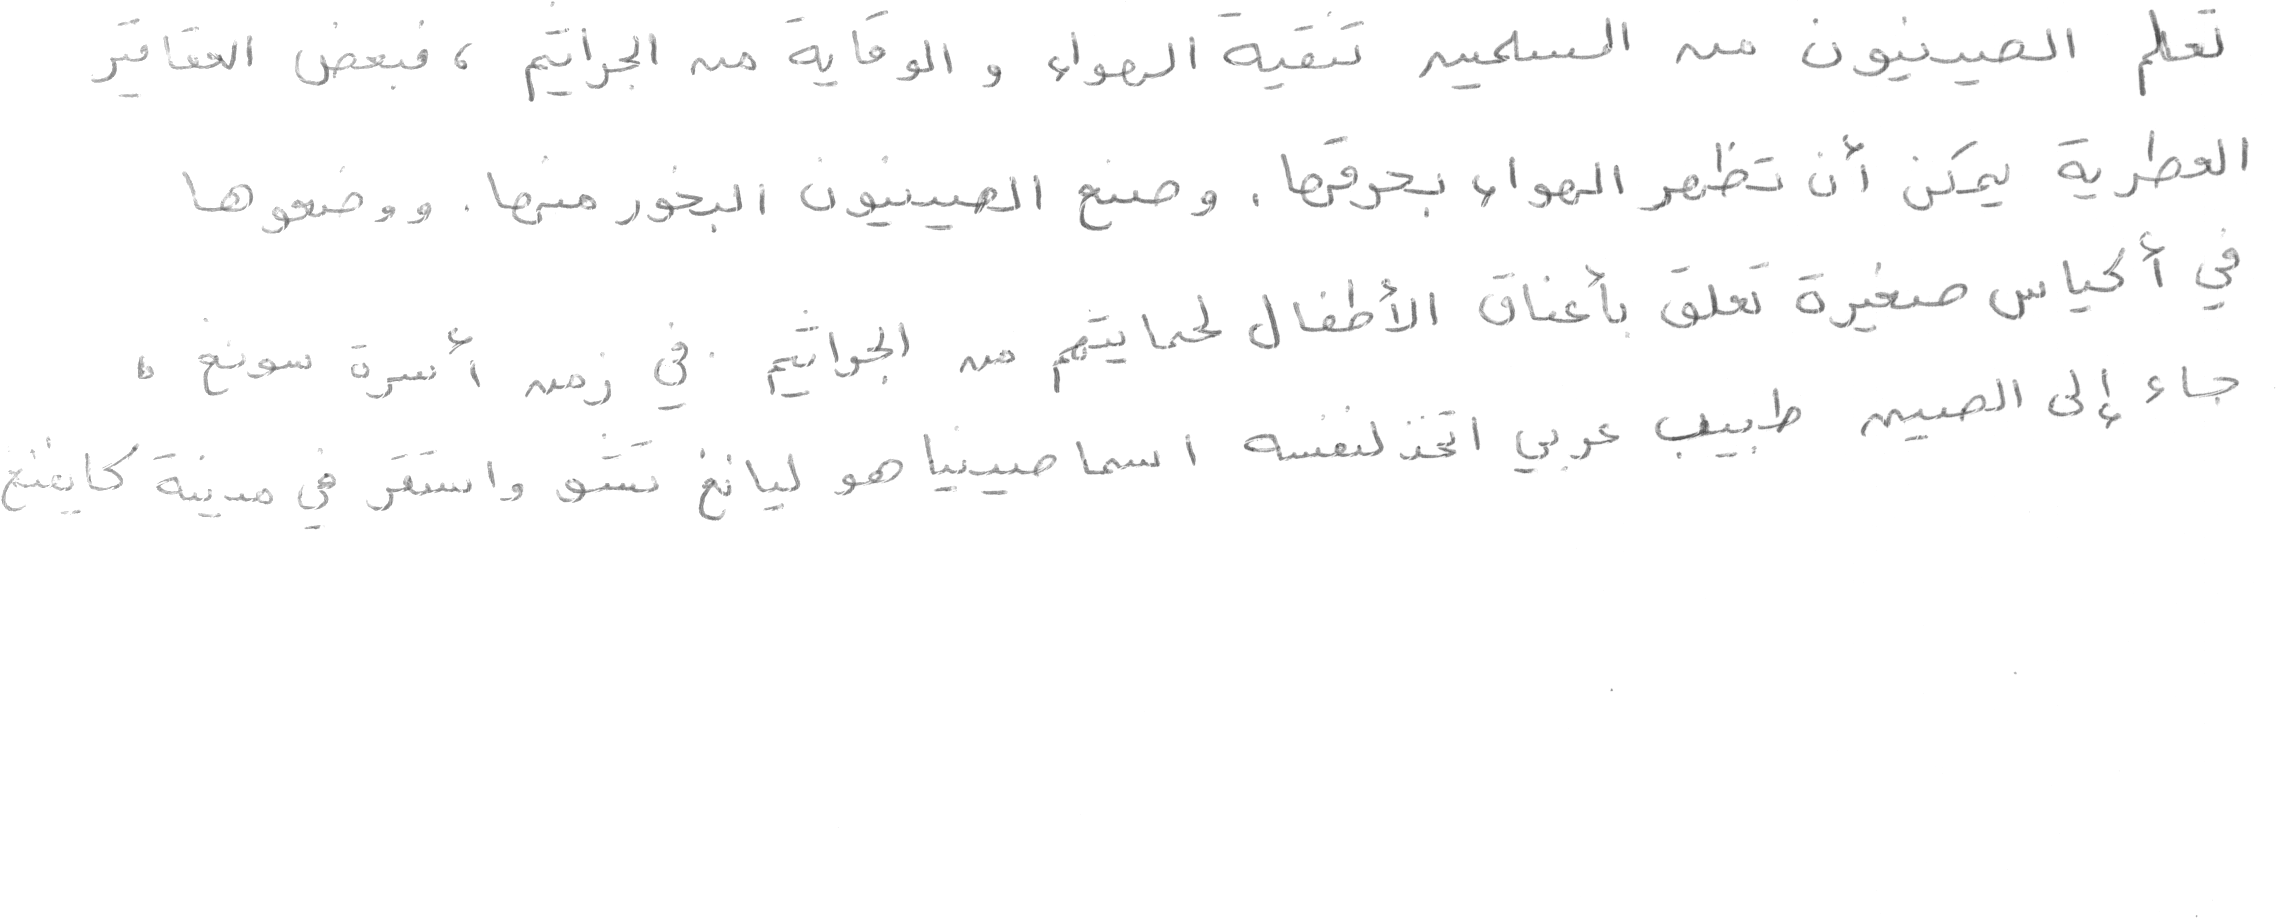 تعلم الصينيون من المسلمين تنقية الهواء و الوقاية من الجراثيم ، فبعض العقاقير
العطرية يمكن أن تظهر الهواء بحرقها . وصنع الصينيون البخور منها . ووضعوها
في أكياس صغيرة تعلق بأعناق الأطفال لحمايتهم من الجراثيم . في زمن أسرة سونغ ،
جاء إلى الصين طبيب عربي اتخذ لنفسه اسما صينيا هو ليانغ تشو واستقر في مدينة كايفنغ